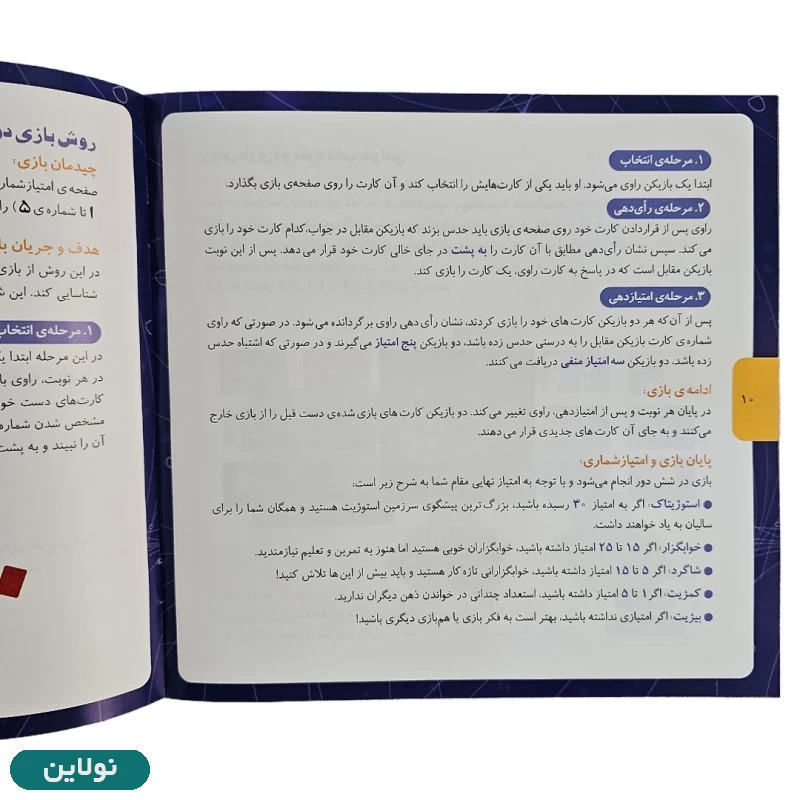 ۱. مرحله‌ی انتخاب
ابتدا یک بازیکن راوی می‌شود. او باید یکی از کارت‌هایش را انتخاب کند و آن کارت را روی صفحه‌ی بازی بگذارد.
۲. مرحله‌ی رأی‌دهی
راوی پس از قراردادن کارت خود روی صفحه‌ی بازی باید حدس بزند که بازیکن مقابل در جواب، کدام کارت خود را بازی
می کند. سپس نشان رأی‌دهی مطابق با آن کارت را به پشت در جای خالی کارت خود قرار می دهد. پس از این نوبت
بازیکن مقابل است که در پاسخ به کارت راوی، یک کارت را بازی کند.
۳. مرحله‌ی امتیازدهی
پس از آن‌که هر دو بازیکن کارت های خود را بازی کردند، نشان رأی دهی راوی برگردانده می‌شود. در صورتی که راوی
شماره‌ی کارت بازیکن مقابل را به درستی حدس زده باشد، دو بازیکن پنج امتیاز می‌گیرند و در صورتی که اشتباه حدس
زده باشد، دو بازیکن سه امتیاز منفی دریافت می کنند.
ادامه‌ی بازی:
در پایان هر نوبت و پس از امتیازدهی، راوی تغییر می‌کند. دو بازیکن کارت های بازی شده‌ی دست قبل را از بازی خارج
می‌کنند و به جای آن کارت های جدیدی قرار می دهند.
پایان بازی و امتیازشماری:
بازی در شش دور انجام می‌شود و با توجه به امتیاز نهایی مقام شما به شرح زیر است:
● استوژیتاک: اگر به امتیاز ۳۰ رسیده باشید، بزرگ ترین پیشگوی سرزمین استوژیت هستید و همگان شما را برای
سالیان به یاد خواهند داشت.
● خوابگزار: اگر ۱۵ تا ۲۵ امتیاز داشته باشید، خوابگزاران خوبی هستید اما هنوز به تمرین و تعلیم نیازمندید.
● شاگرد: اگر ۵ تا ۱۵ امتیاز داشته باشید، خوابگزارانی تازه کار هستید و باید بیش از این‌ها تلاش کنید!
● کمژیت: اگر ۱ تا ۵ امتیاز داشته باشید، استعداد چندانی در خواندن ذهن دیگران ندارید.
● بیژیت: اگر امتیازی نداشته باشید، بهتر است به فکر بازی یا هم‌بازی دیگری باشید!
۱۰
روش بازی دو
چیدمان بازی:
صفحه‌ی امتیازشمار
۱ تا شماره‌ی ۵) را
هدف و جریان با
در این روش از بازی
شناسایی کند. این ش
۱. مرحله‌ی انتخاب
در این مرحله ابتدا یک
در هر نوبت، راوی با
کارت‌های دست خو
مشخص شدن شماره
آن را نبیند و به پشت
نولاین